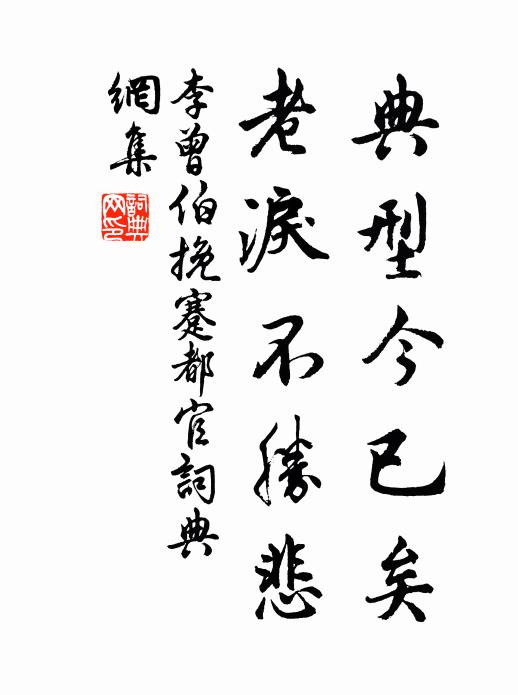 典型今已矣
老淚不勝悲
李曾伯挽蹇都官詞典
網集
詞典
网印